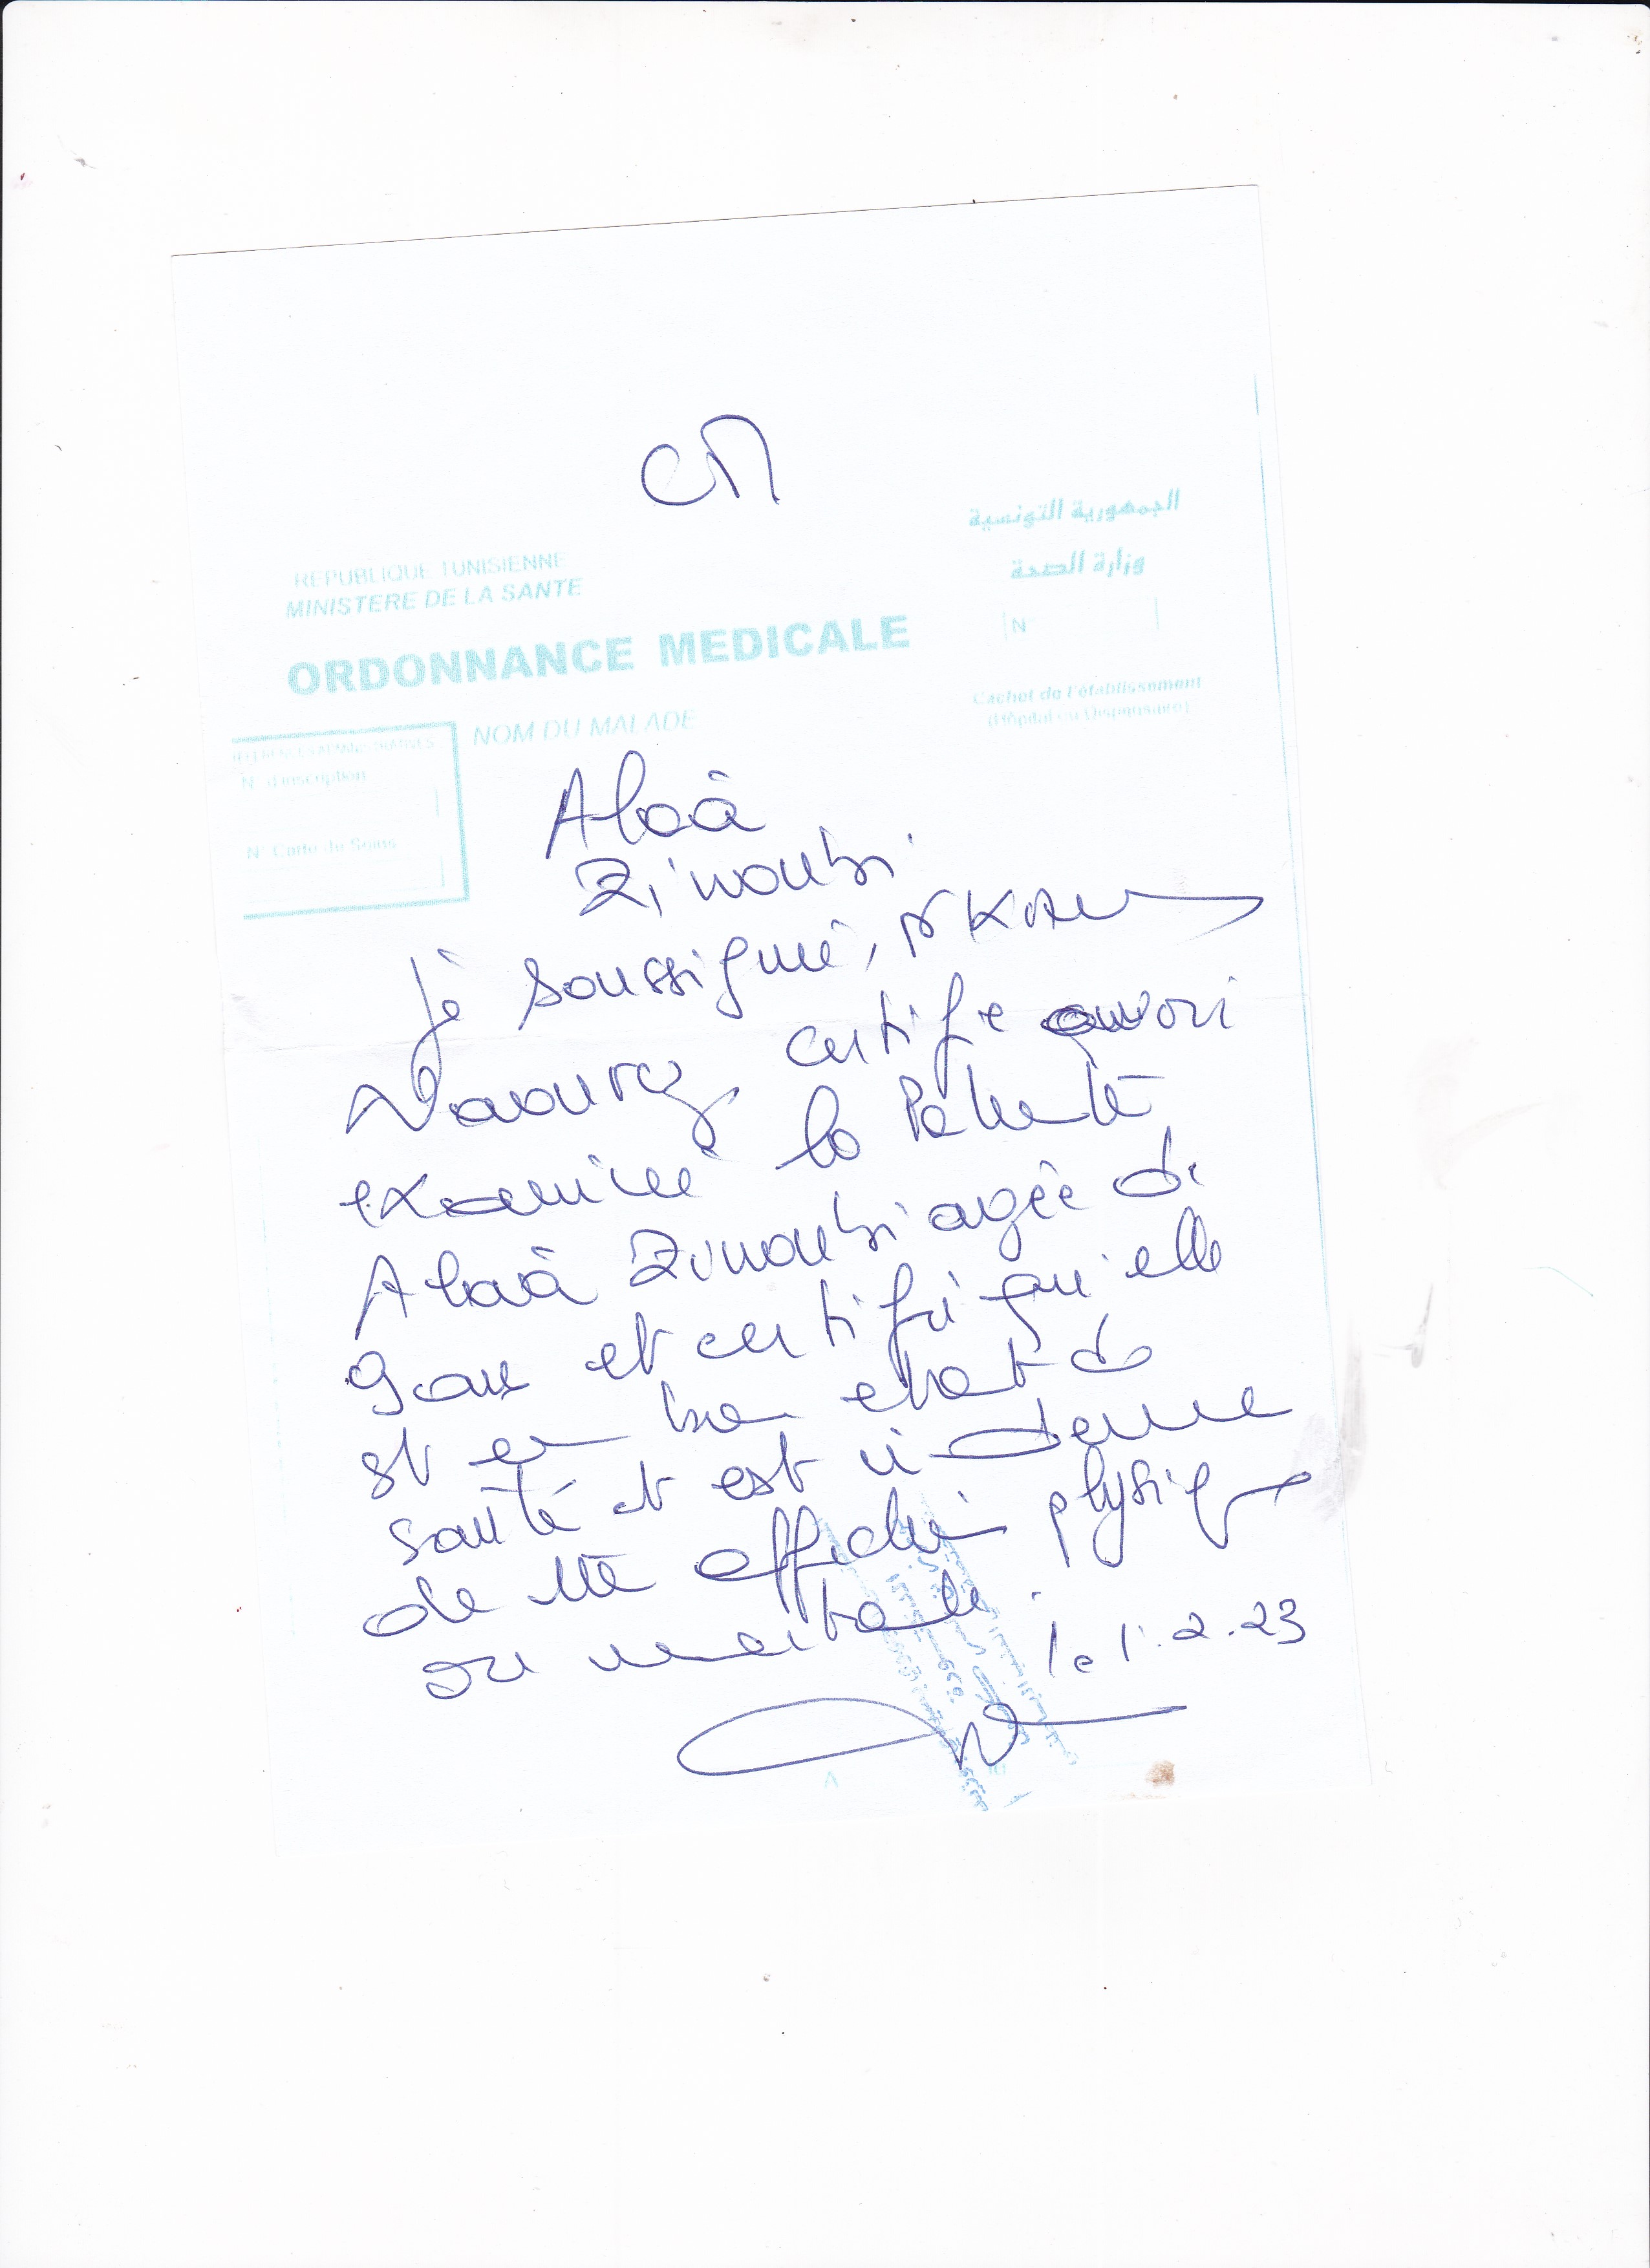 CM
REPUBLIQUE TUNISIENNE
MINISTERE DE LA SANTE
الجمهورية التونسية
وزارة الصحة
ORDONNANCE MEDICALE
N°
Cachet de l'établissement
(Hôpital ou Dispensaire)
NOM DU MALADE
REFERENCES ADMINISTRATIVES
N° d'inscription
N° Carte de Soins
Alaà
Zinoubi
Je soussigné, Dr
certifie avoir
examiné la Patiente
Alaà Zinoubi agée de
9 ans et certifie qu'elle
st en bon etat de
santé et est indemne
de tte affection physique
ou mentale.
le 1.2.23